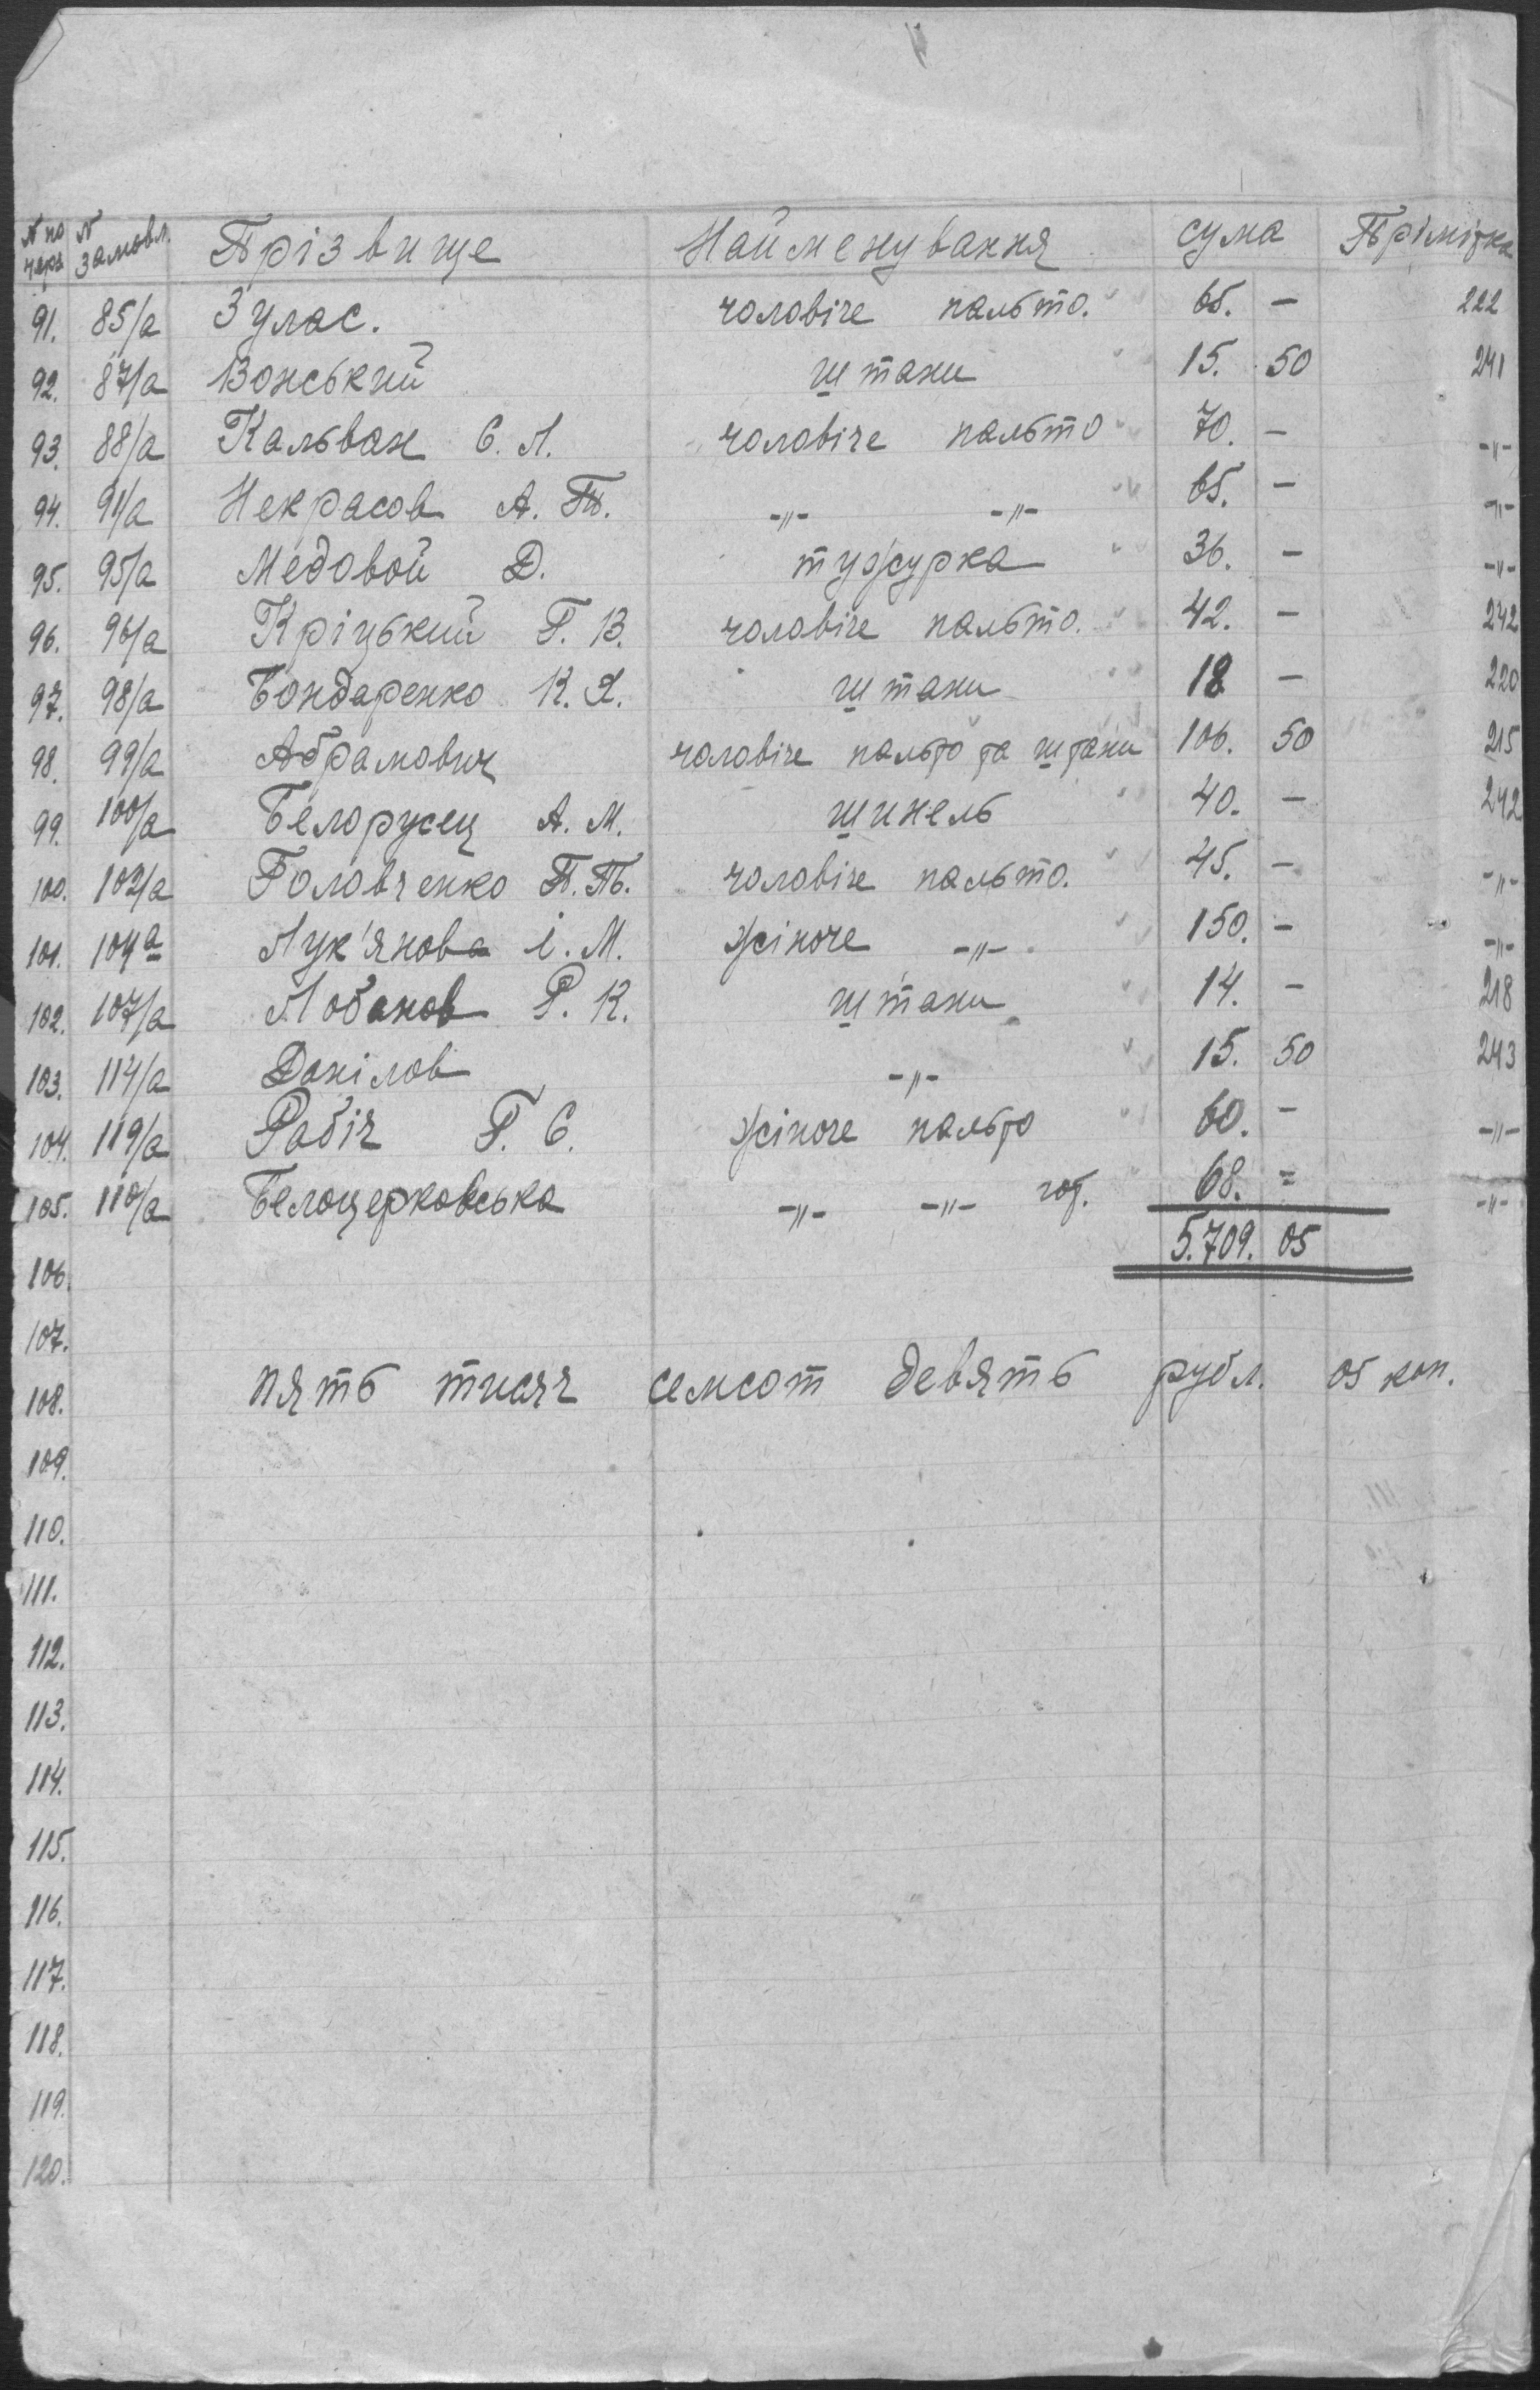 № по черз № замовл. Прізвище Найменування сума Прімітка
91. 85/а Зулас. чоловіче пальто. 65. – 222
92. 87/а Вонський штани 15. 50 241
93. 88/а Кальван Є. Л. чоловіче пальто 70. – -"-
94. 91/а Некрасов А. П. -"- -"- 65. – -"-
95. 95/а Медовой Д. тужурка 36. – -"-
96. 96/а Кріцький Г. В. чоловіче пальто. 42. – 242
97. 98/а Бондаренко К. Я. штани 18 – 220
98. 99/а Абрамович чоловіче пальто та штани 106. 50 215
99. 100/а Белорусец А. М. шинель 40. – 242
100. 102/а Головченко П. П. чоловіче пальто. 45. – -"-
101. 104а Лук'янова і. М. жіноче -"- 150. – -"-
102. 107/а Лобанов Р. К. штани 14. – 218
103. 114/а Данілов -"- 15. 50 243
104. 119/а Рабіч Г. Є. жіноче пальто 60. – -"-
105. 110/а Белоцерковська -"- -"- 68. = -"-
106. 5.709. 05
107.
108. пять тисяч семсот девять рубл. 05 коп.
109.
110.
111.
112.
113.
114.
115.
116.
117.
118.
119.
120.